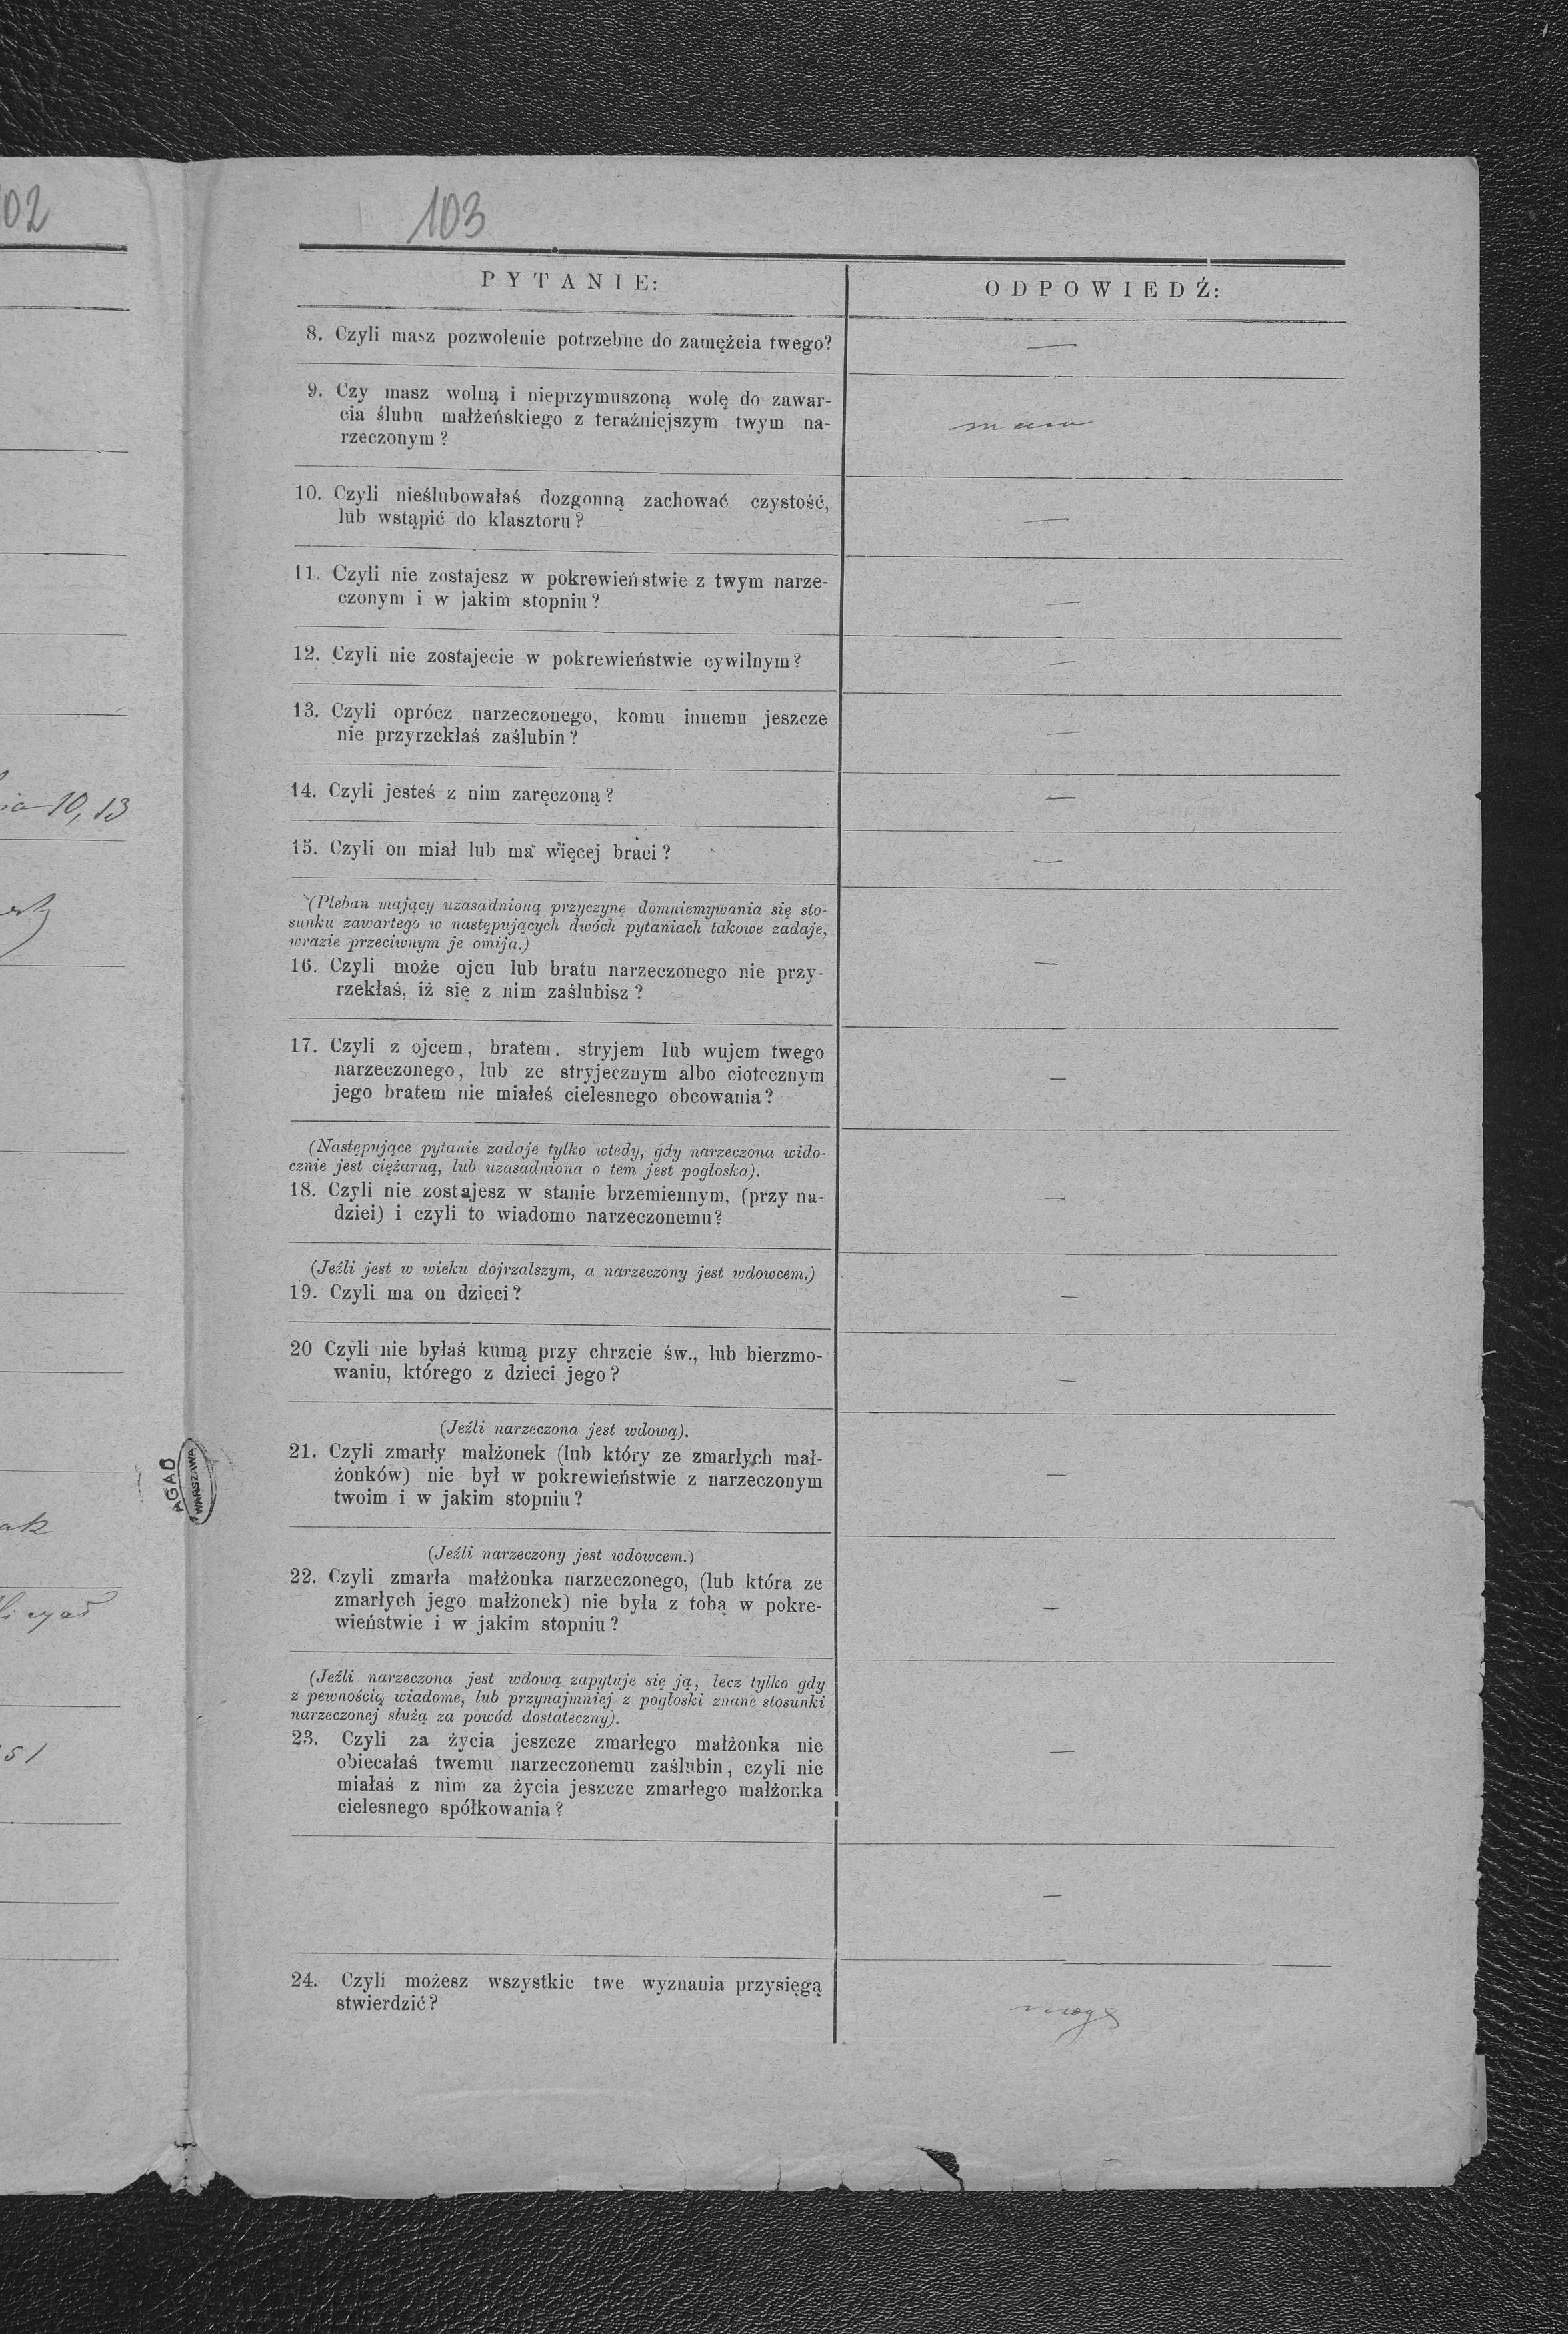 02
103
PYTANIE:
ODPOWIEDŹ:
8. Czyli masz pozwolenie potrzebne do zamężcia twego?
—
9. Czy masz wolną i nieprzymuszoną wolę do zawar-
cia ślubu małżeńskiego z teraźniejszym twym na-
rzeczonym?
mam
10. Czyli nieślubowałaś dozgonną zachować czystość,
lub wstąpić do klasztoru?
—
11. Czyli nie zostajesz w pokrewieństwie z twym narze-
czonym i w jakim stopniu?
—
12. Czyli nie zostajecie w pokrewieństwie cywilnym?
—
13. Czyli oprócz narzeczonego, komu innemu jeszcze
nie przyrzekłaś zaślubin?
—
14. Czyli jesteś z nim zaręczoną?
—
15. Czyli on miał lub ma więcej braci?
—
(Pleban mający uzasadnioną przyczynę domniemywania się sto-
sunku zawartego w następujących dwóch pytaniach takowe zadaje,
wrazie przeciwnym je omija.)
16. Czyli może ojcu lub bratu narzeczonego nie przy-
rzekłaś, iż się z nim zaślubisz?
—
17. Czyli z ojcem, bratem. stryjem lub wujem twego
narzeczonego, lub ze stryjecznym albo ciotecznym
jego bratem nie miałeś cielesnego obcowania?
—
(Następujące pytanie zadaje tylko wtedy, gdy narzeczona wido-
cznie jest ciężarną, lub uzasadniona o tem jest pogłoska).
18. Czyli nie zostajesz w stanie brzemiennym, (przy na-
dziei) i czyli to wiadomo narzeczonemu?
—
(Jeźli jest w wieku dojrzalszym, a narzeczony jest wdowcem.)
19. Czyli ma on dzieci?
—
20 Czyli nie byłaś kumą przy chrzcie św., lub bierzmo-
waniu, którego z dzieci jego?
—
(Jeźli narzeczona jest wdową).
21. Czyli zmarły małżonek (lub który ze zmarłych mał-
żonków) nie był w pokrewieństwie z narzeczonym
twoim i w jakim stopniu?
—
(Jeźli narzeczony jest wdowcem.)
22. Czyli zmarła małżonka narzeczonego, (lub która ze
zmarłych jego małżonek) nie była z tobą w pokre-
wieństwie i w jakim stopniu?
—
(Jeźli narzeczona jest wdową zapytuje się ją, lecz tylko gdy
z pewnością wiadome, lub przynajmniej z pogłoski znane stosunki
narzeczonej służą za powód dostateczny).
23. Czyli za życia jeszcze zmarłego małżonka nie
obiecałaś twemu narzeczonemu zaślubin, czyli nie
miałaś z nim za życia jeszcze zmarłego małżonka
cielesnego spółkowania?
—
—
24. Czyli możesz wszystkie twe wyznania przysięgą
stwierdzić?
mogę
10, 13
51
AGAD
WARSZAWA